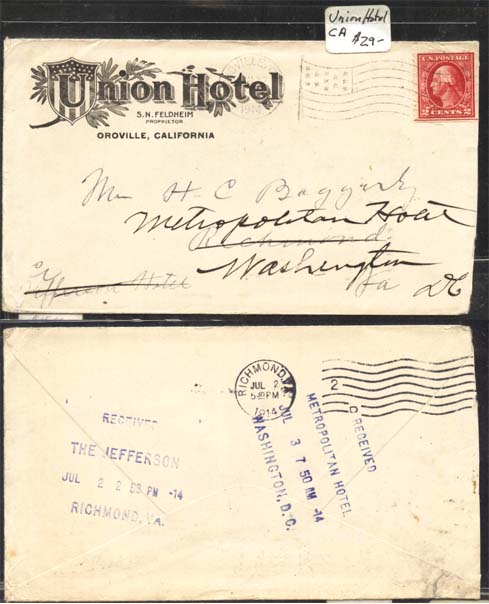 Union Hotel
CA $29-
Union Hotel
S. N. FELDHEIM
PROPRIETOR
OROVILLE, CALIFORNIA
U.S. POSTAGE
2 CENTS 2
H. C. Baggarly
Metropolitan Hotel
Richmond
Washington
Va DC
Jefferson Hotel
RICHMOND, VA.
JUL 2
5-PM
1914
2
RECEIVED
THE JEFFERSON
JUL 2 2 53 PM -14
RICHMOND, VA.
RECEIVED
METROPOLITAN HOTEL
JUL 3 7 50 AM -14
WASHINGTON, D.C.